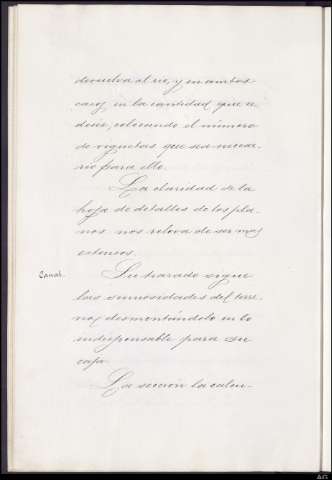 devuelva al rio, y en ambos
casos en la cantidad que se
desee, colocando el número
de viguetas que sea necesa-
rio para ello.
La claridad de la
hoja de detalles de los pla-
nos nos releva de ser mas
extensos.
Canal.
Su trazado sigue
las sinuosidades del terre-
no, desmontándolo en lo
indispensable para su
caja.
La sección la calcu-